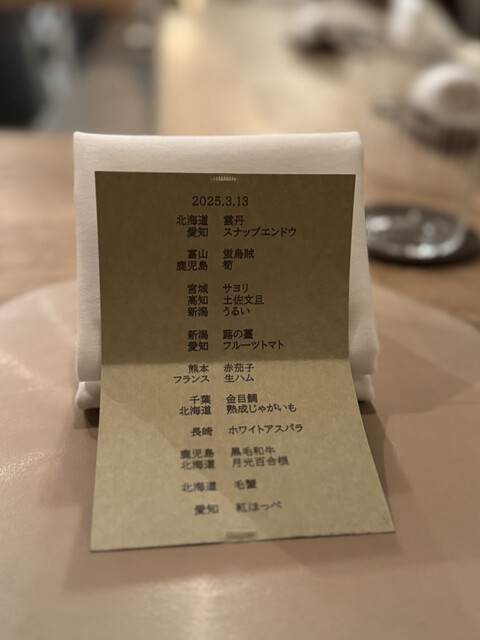 2025.3.13
北海道 雲丹
愛知 スナップエンドウ
富山 蛍烏賊
鹿児島 筍
宮城 サヨリ
高知 土佐文旦
新潟 うるい
新潟 蕗の薹
愛知 フルーツトマト
熊本 赤茄子
フランス 生ハム
千葉 金目鯛
北海道 熟成じゃがいも
長崎 ホワイトアスパラ
鹿児島 黒毛和牛
北海道 月光百合根
北海道 毛蟹
愛知 紅ほっぺ